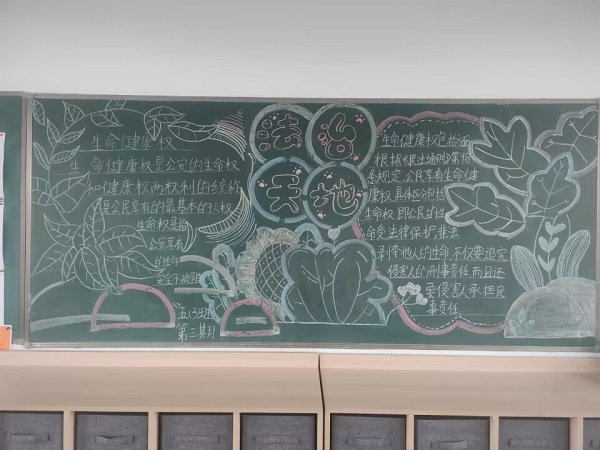 法治
天地
生命健康权
生命健康权是公安的生命权
和健康权两权利的统称
是公民享有的最基本的人权
生命权是指
公安享有
的生命
安全不被
五(3)班
第三期月
生命健康权包括
根据《民法通则》第
条规定,公民享有生命健
康权具体包括
生命权,即公民的生
命受法律保护非法
剥夺他人的生命,不仅要追究
侵害人的刑事责任,而且还
要侵害人承担民
事责任